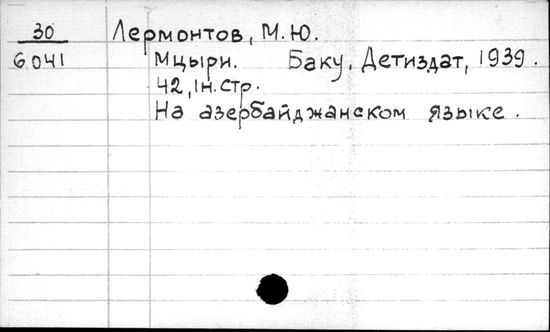 30 Лермонтов, М.Ю.
6041 Мцыри. Баку, Детиздат, 1939.
42, 1н.стр.
На азербайджанском языке.